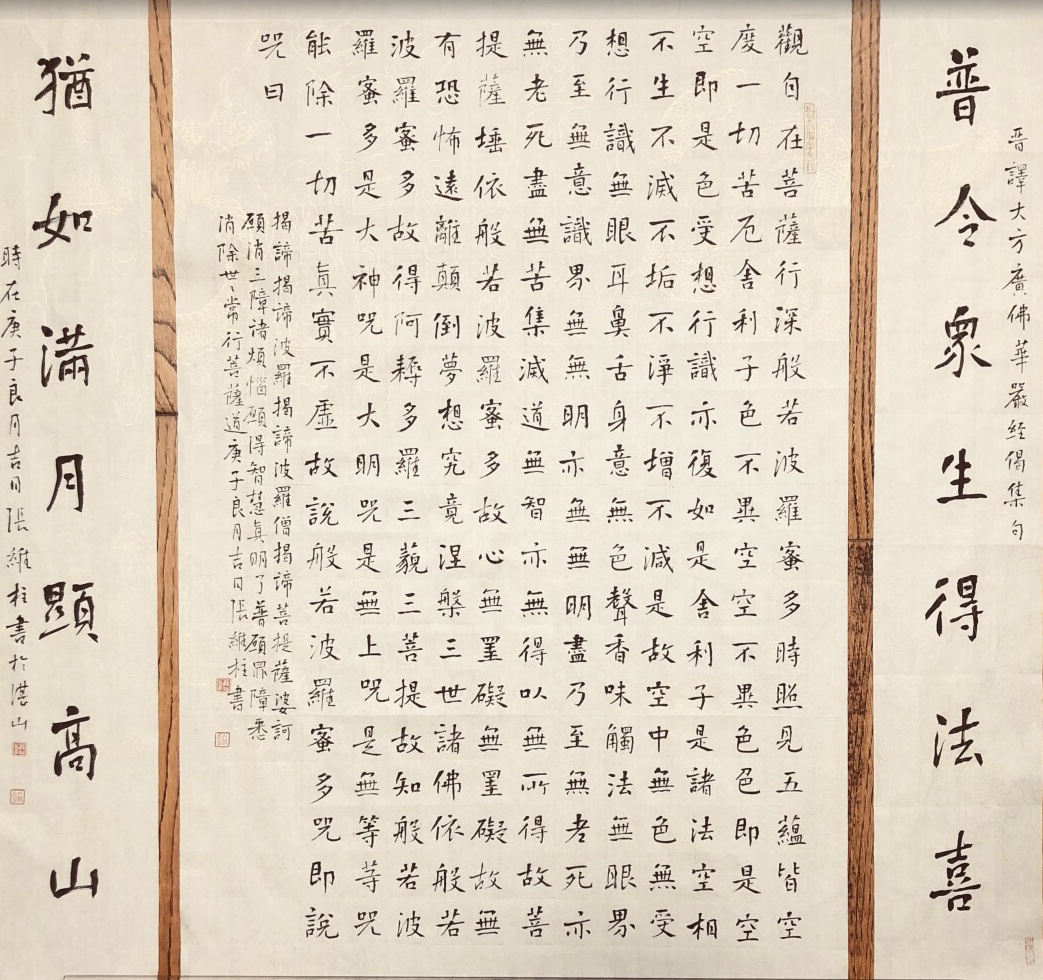 晉譯大方廣佛華嚴經偈集句
普令眾生得法喜
觀自在菩薩行深般若波羅蜜多時照見五蘊皆空
度一切苦厄舍利子色不異空空不異色色即是空
空即是色受想行識亦復如是舍利子是諸法空相
不生不滅不垢不淨不增不減是故空中無色無受
想行識無眼耳鼻舌身意無色聲香味觸法無眼界
乃至無意識界無無明亦無無明盡乃至無老死亦
無老死盡無苦集滅道無智亦無得以無所得故菩
提薩埵依般若波羅蜜多故心無罣礙無罣礙故無
有恐怖遠離顛倒夢想究竟涅槃三世諸佛依般若
波羅蜜多故得阿耨多羅三藐三菩提故知般若波
羅蜜多是大神咒是大明咒是無上咒是無等等咒
能除一切苦真實不虛故說般若波羅蜜多咒即說
咒曰
揭諦揭諦波羅揭諦波羅僧揭諦菩提薩婆訶
願消三障諸煩惱願得智慧真明了普願罪障悉
消除世〻常行菩薩道庚子良月吉日張維柱書
猶如滿月顯高山
時在庚子良月吉日張維柱書於湛山